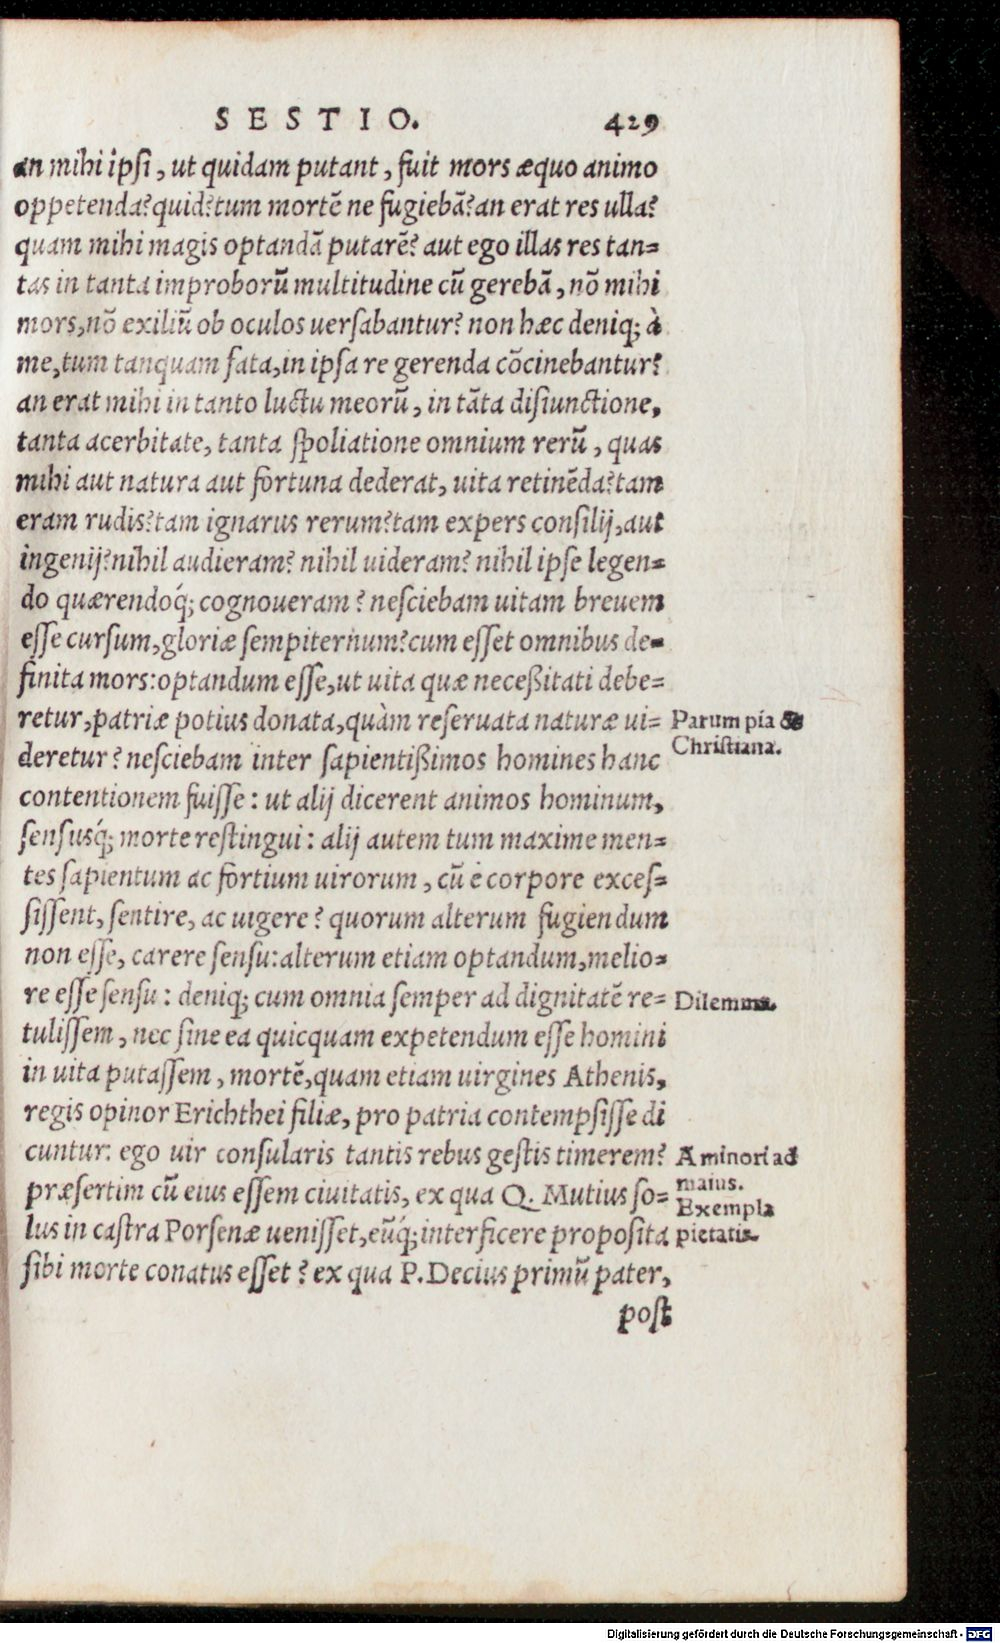 SESTIO. 429
an mihi ipsi, ut quidam putant, fuit mors æquo animo
oppetenda? quid? tum mortē ne fugiebā? an erat res ulla?
quam mihi magis optandā putarē? aut ego illas res tan=
tas in tanta improborū multitudine cū gerebā, nō mihi
mors, nō exiliū ob oculos uersabantur? non hæc deniq; à
me, tum tanquam fata, in ipsa re gerenda cōcinebantur?
an erat mihi in tanto luctu meorū, in tāta disiunctione,
tanta acerbitate, tanta spoliatione omnium rerū, quas
mihi aut natura aut fortuna dederat, uita retinēda? tam
eram rudis? tam ignarus rerum? tam expers consilij, aut
ingenij? nihil audieram? nihil uideram? nihil ipse legen=
do quærendoq́; cognoueram? nesciebam uitam breuem
esse cursum, gloriæ sempiternum? cum esset omnibus de=
finita mors: optandum esse, ut uita quæ neceßitati debe=
retur, patriæ potius donata, quàm reseruata naturæ ui=
deretur? nesciebam inter sapientißimos homines hanc
contentionem fuisse: ut alij dicerent animos hominum,
sensusq́; morte restingui: alij autem tum maxime men=
tes sapientum ac fortium uirorum, cū è corpore exces=
sissent, sentire, ac uigere? quorum alterum fugiendum
non esse, carere sensu: alterum etiam optandum, melio=
re esse sensu: deniq; cum omnia semper ad dignitatē re=
tulissem, nec sine ea quicquam expetendum esse homini
in uita putassem, mortē, quam etiam uirgines Athenis,
regis opinor Erichthei filiæ, pro patria contempsisse di
cuntur: ego uir consularis tantis rebus gestis timerem?
præsertim cū eius essem ciuitatis, ex qua Q. Mutius so=
lus in castra Porsenæ uenisset, eūq́; interficere proposita
sibi morte conatus esset? ex qua P. Decius primū pater,
post
Parum pia &
Christiana.
Dilemma.
A minori ad
maius.
Exempla
pietatis.
Digitalisierung gefördert durch die Deutsche Forschungsgemeinschaft - DFG